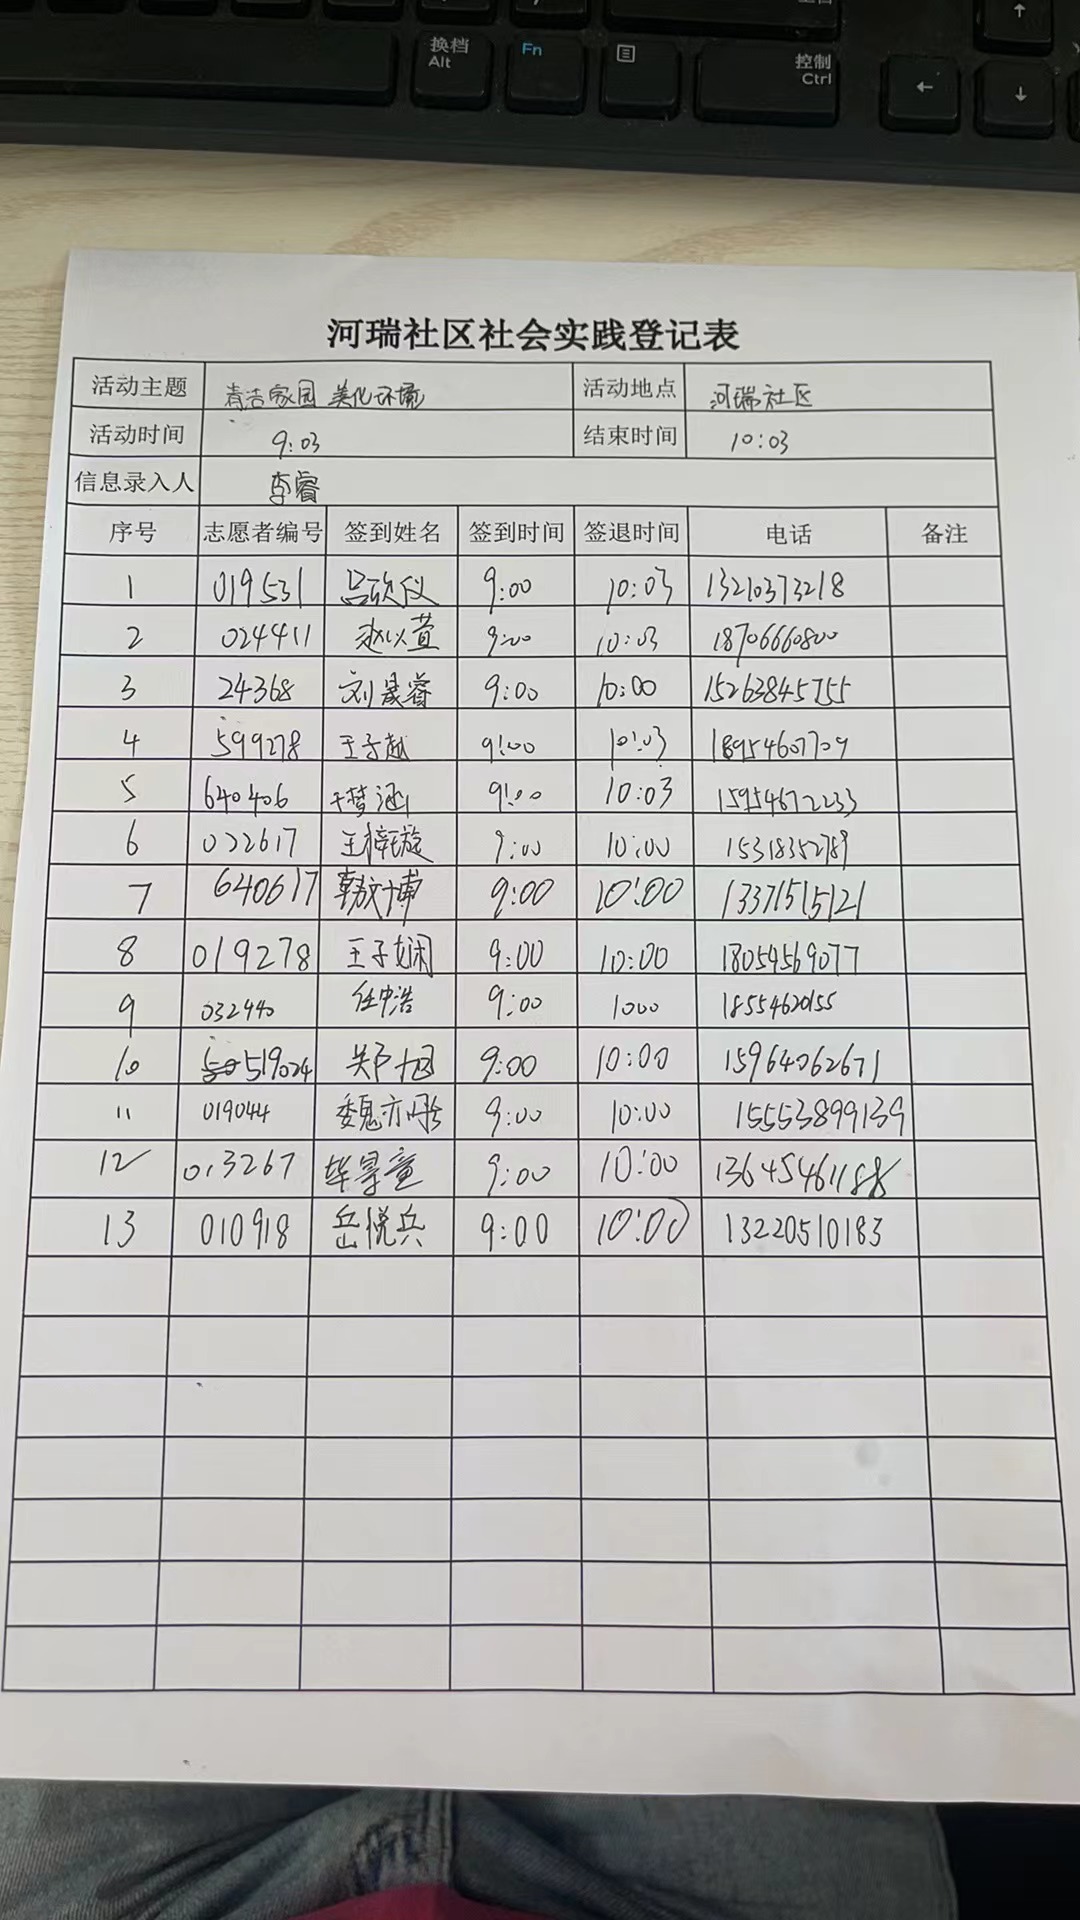 换档
Alt
Fn
控制
Ctrl
河瑞社区社会实践登记表
活动主题 清洁家园 美化环境 活动地点 河瑞社区
活动时间 9:03 结束时间 10:03
信息录入人 李睿
序号 志愿者编号 签到姓名 签到时间 签退时间 电话 备注
1 019531 吕欣仪 9:00 10:03 13210373218
2 024411 赵以萱 9:00 10:03 18706660800
3 24368 刘晟睿 9:00 10:00 15263845755
4 599278 王子越 9:00 10:03 18954607709
5 640406 于梦涵 9:00 10:03 15954672233
6 022617 王梓璇 9:00 10:00 15318352789
7 640617 韩文博 9:00 10:00 13371515121
8 019278 王子娴 9:00 10:00 18054569077
9 032440 任中浩 9:00 1000 18554620155
10 519024 郑旭 9:00 10:00 15964062671
11 019044 魏亦彤 9:00 10:00 15553899139
12 013267 9:00 10:00 13645461188
13 010918 岳悦兵 9:00 10:00 13220510183